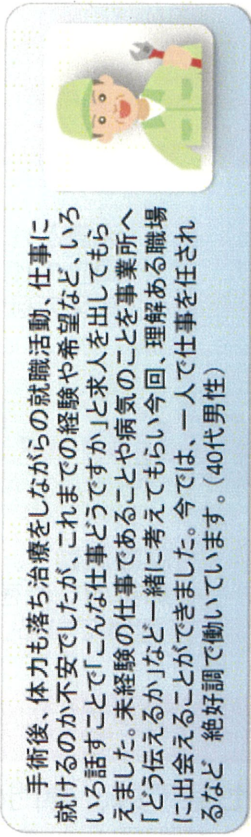 手術後、体力も落ち治療をしながらの就職活動、仕事に
就けるのか不安でしたが、これまでの経験や希望など、いろ
いろ話すことで「こんな仕事どうですか」と求人を出してもら
えました。未経験の仕事であることや病気のことを事業所へ
「どう伝えるか」など一緒に考えてもらい今回、理解ある職場
に出会えることができました。今では、一人で仕事を任され
るなど 絶好調で働いています。(40代男性)